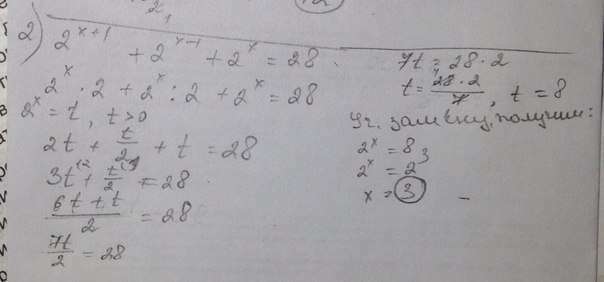 2) 2^{x+1} + 2^{x-1} + 2^x = 28
2^x · 2 + 2^x : 2 + 2^x = 28
2^x = t, t > 0
2t + t/2 + t = 28
3t + t/2 = 28
(6t + t)/2 = 28
7t/2 = 28
7t = 28 · 2
t = (28 · 2)/7, t = 8
замену, получим:
2^x = 8
2^x = 2^3
x = 3